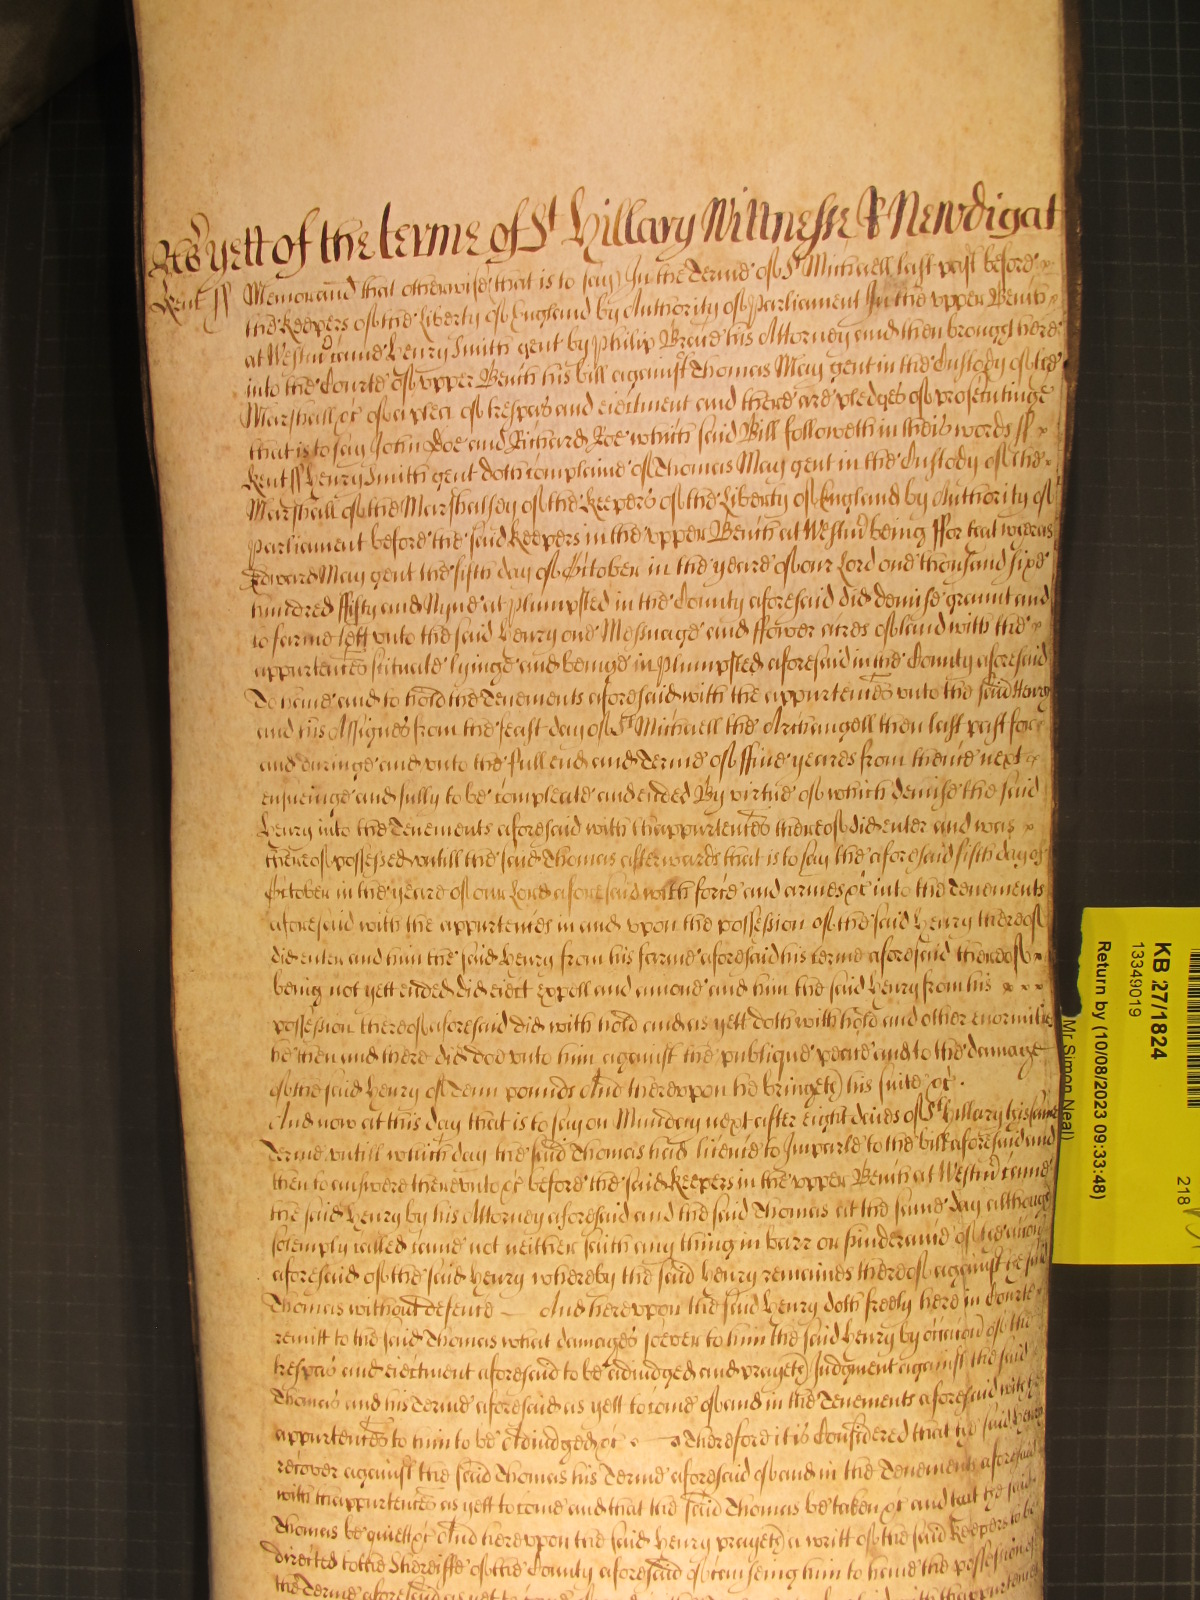 As yett of the terme of St Hillary Wittnesse R Newdigat
Kent ss Memorand that otherwise that is to say In the Terme of St Michaell last past before
the Keepers of the Liberty of England by Authority of Parliament In the vpper Bench
at Westm came Henry Smith gent by Philip his Attorney and then brough here
into the Courte of vpper Bench his bill against Thomas May gent in the Custody of the
Marshall &c of a plea of trespas and eiectment and there are pledges of prosecutinge
that is to say John Doe and Richard Roe which said Bill followeth in theis words ss
Kent ss Henry Smith gent doth complaine of Thomas May gent in the Custody of the
Marshall of the Marshalsey of the Keepers of the Liberty of England by Authority of
Parliament before the said Keepers in the vpper Bench at Westm being ffor that whereas
Edward May gent the fifth day of October in the yeare of our Lord one thousand sixe
hundred ffifty and Nyne at Plumpsted in the County aforesaid did demise graunt and
to farme lett vnto the said Henry one Messuage and ffower acres of land with the
appurtences scituate lyinge and beinge in Plumpsted aforesaid in the County aforesaid
To haue and to hold the Tenements aforesaid with the appurtences vnto the said Henry
and his Assignes from the feast day of St Michaell the Archangell then last past for
and duringe and vnto the full end and Terme of ffiue yeares from thence next
ensueinge and fully to be compleate and ended By virtue of which demise the said
Henry into the Tenements aforesaid with thappurtences thereof did enter and was
thereof possessed vntill the said Thomas afterwards that is to say the aforesaid fifth day of
October in the yeare of our Lord aforesaid with force and armes &c into the Tenements
aforesaid with the appurtences in and vpon the possession of the said Henry thereof
did enter and him the said Henry from his farme aforesaid his terme aforesaid thereof
being not yett ended did eiect expell and amoue and him the said Henry from his
possession thereof aforesaid did with hold and as yett doth with hold and other enormities
he then and there did doe vnto him against the publique peace and to the damage
of the said Henry of Tenn pounds And therevpon he bringeth his suite &c.
And now at this day that is to say on Munday next after eight daies of St Hillary this same
Terme vntill which day the said Thomas had licence to Imparle to the bill aforesaid and
then to answere therevnto &c before the said Keepers in the vpper Bench at Westm came
the said Henry by his Attorney aforesaid and the said Thomas at the same day although
solemply called came not neither saith any thing in barr or hinderance of the accon
aforesaid of the said Henry whereby the said Henry remaines thereof against the said
Thomas without defence — And herevpon the said Henry doth freely here in Courte
remitt to the said Thomas what damages soever to him the said Henry by occacon of the
trespas and eiectment aforesaid to be adiudged and prayeth Judgment against the said
Thomas and his Terme aforesaid as yett to come of and in the Tenements aforesaid with the
appurtences to him to be Adiudged &c — Therefore it is Considered that the said Henry
recover against the said Thomas his Terme aforesaid of and in the Tenements aforesaid
with thappurtences as yett to come and that the said Thomas be taken &c and that the said
Thomas be quiett &c And herevpon the said Henry prayeth a writt of the said Keepers to be
directed to the Sherriffe of the County aforesaid of causeing him to haue the possession of
the Terme aforesaid as yet to come
KB 27/1824
13349019
Return by (10/08/2023 09:33:48)
218
Mr Simon Neal)